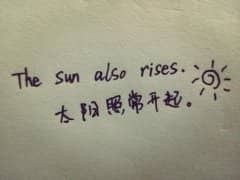 The sun also rises.
太阳照常升起。